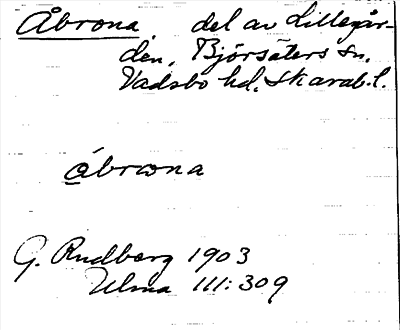 Åbrona, del av Lillegår-
den, Björsäters sn,
Vadsbo hd, Skarab.l.
åbrωna
G. Rudberg 1903
Ulma 111:309